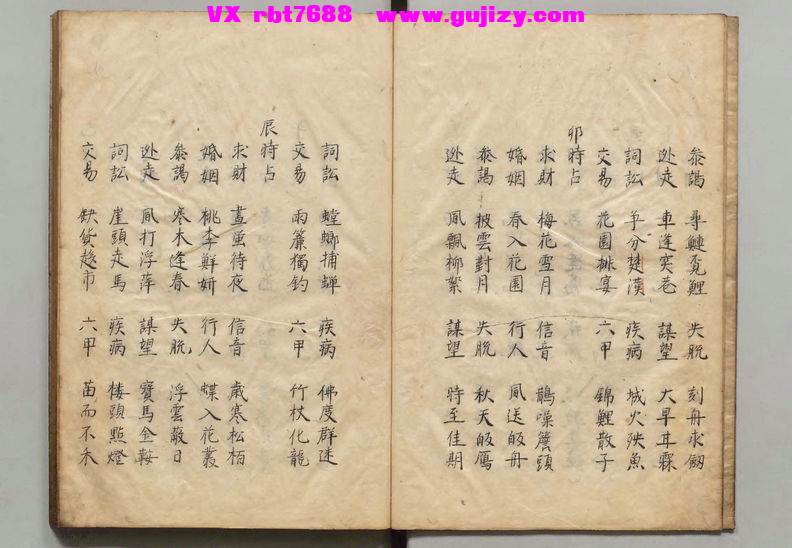 VX rbt7688 www.gujizy.com
叅謁 尋鰱覓鯉 失脫 刻舟求劒
迯走 車逢窄巷 謀望 大旱甘霖
詞訟 爭分楚漢 疾病 城火殃魚
交易 花園排宴 六甲 錦鯉散子
卯時占
求財 梅花雪月 信音 鵲噪簷頭
婚姻 春入花園 行人 風送皈舟
叅謁 披雲對月 失脫 秋天皈鴈
迯走 風飄柳絮 謀望 時至佳期
詞訟 螳螂捕蟬 疾病 佛度群迷
交易 雨簾獨釣 六甲 竹杖化龍
辰時占
求財 晝螢待夜 信音 歲寒松栢
婚姻 桃李鮮妍 行人 蝶入花叢
叅謁 寒木逢春 失脫 浮雲蔽日
迯走 風打浮萍 謀望 寶馬金鞍
詞訟 崖頭走馬 疾病 楼頭點燈
交易 缺貨趂市 六甲 苗而不禾